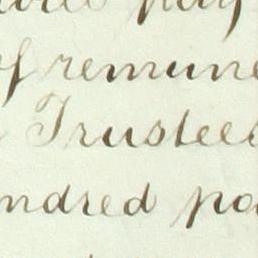 of remune
Trustees
ndred po